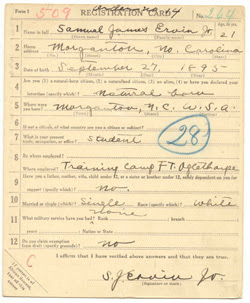 Form 1
509
REGISTRATION CARD
1 Name in full Samuel James Ervin Jr. 21
2 Home address Morganton, No. Carolina
3 Date of birth September 27, 1895
4 Are you (1) a natural-born citizen, (2) a naturalized citizen, (3) an alien, (4) or have you declared your
intention (specify which)? Natural born
5 Where were you born? Morganton, N.C. U.S.A.
6 If not a citizen, of what country are you a citizen or subject?
7 What is your present trade, occupation, or office? Student
28
8 By whom employed?
Where employed? Training Camp FT. Oglethorpe
9 Have you a father, mother, wife, child under 12, or a sister or brother under 12, solely dependent on you for
support (specify which)? No.
10 Married or single (which)? Single Race (specify which)? White
11 What military service have you had? Rank None ; branch
years ; Nation or State
12 Do you claim exemption from draft (specify grounds)? No
I affirm that I have verified above answers and that they are true.
S. J. Ervin Jr.
(Signature or mark)